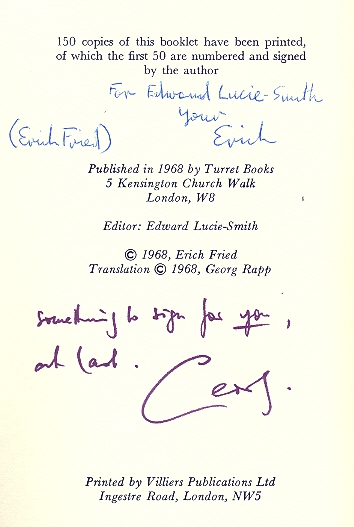 150 copies of this booklet have been printed,
of which the first 50 are numbered and signed
by the author
For Edward Lucie-Smith
Your
(Erich Fried) Erich
Published in 1968 by Turret Books
5 Kensington Church Walk
London, W8
Editor: Edward Lucie-Smith
© 1968, Erich Fried
Translation © 1968, Georg Rapp
something to sign for you,
at last.
Georg.
Printed by Villiers Publications Ltd
Ingestre Road, London, NW5